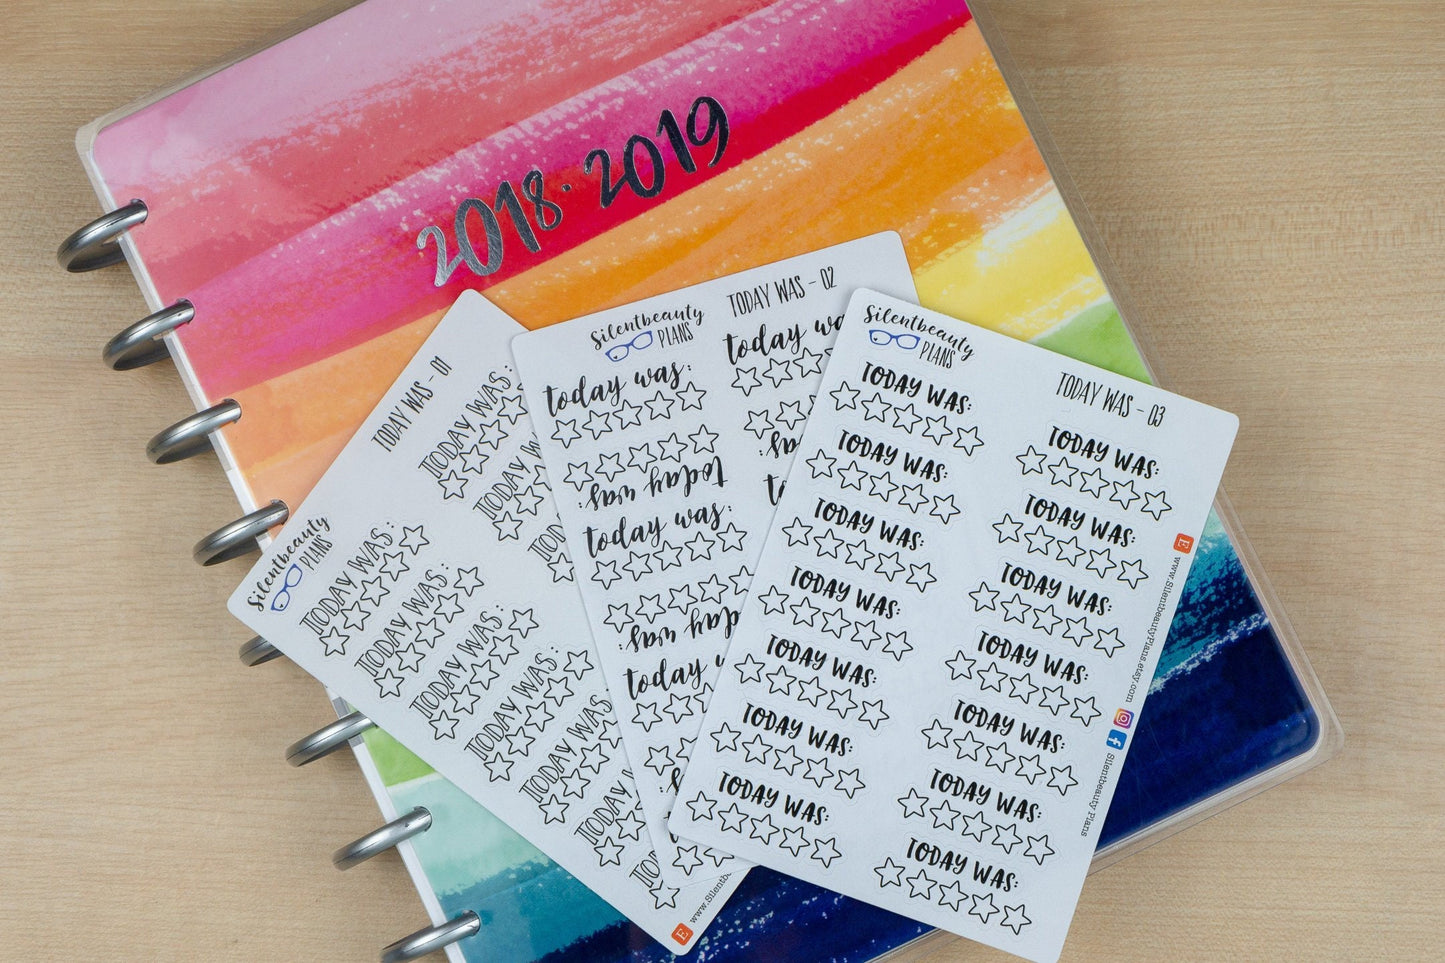 2018·2019
TODAY WAS - 01
Silentbeauty
PLANS
TODAY WAS:
TODAY WAS:
TODAY
TODAY WAS:
TODAY WAS:
TODAY WAS:
TODAY WAS:
TODAY WAS:
TODAY
TODAY
E
www.Silentb
Silentbeauty
PLANS
TODAY WAS - 02
today was:
today was:
today was:
today was:
today
today wa
Silentbeauty
PLANS
TODAY WAS - 03
TODAY WAS:
TODAY WAS:
TODAY WAS:
TODAY WAS:
TODAY WAS:
TODAY WAS:
TODAY WAS:
TODAY WAS:
TODAY WAS:
TODAY WAS:
TODAY WAS:
TODAY WAS:
TODAY WAS:
TODAY WAS:
E
www.SilentbeautyPlans.etsy.com
f
Silentbeauty Plans